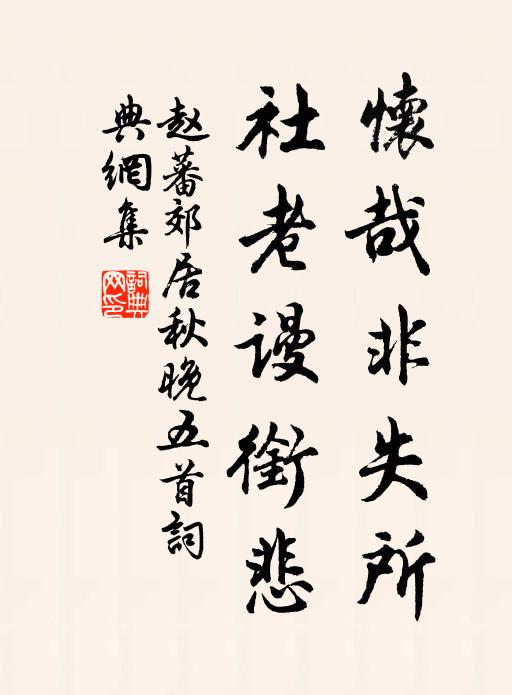 懷哉非失所
社老謾銜悲
赵蕃郊居秋晚五首詞
典網集
詞典
网印